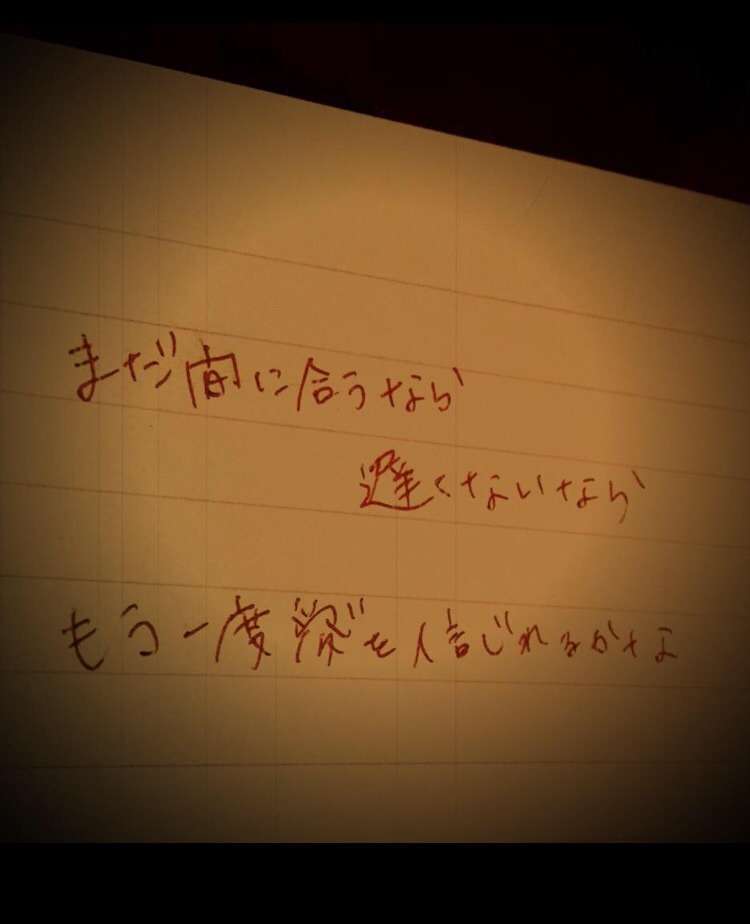 まだ間に合うなら
遅くないなら
もう一度 を信じれるかな